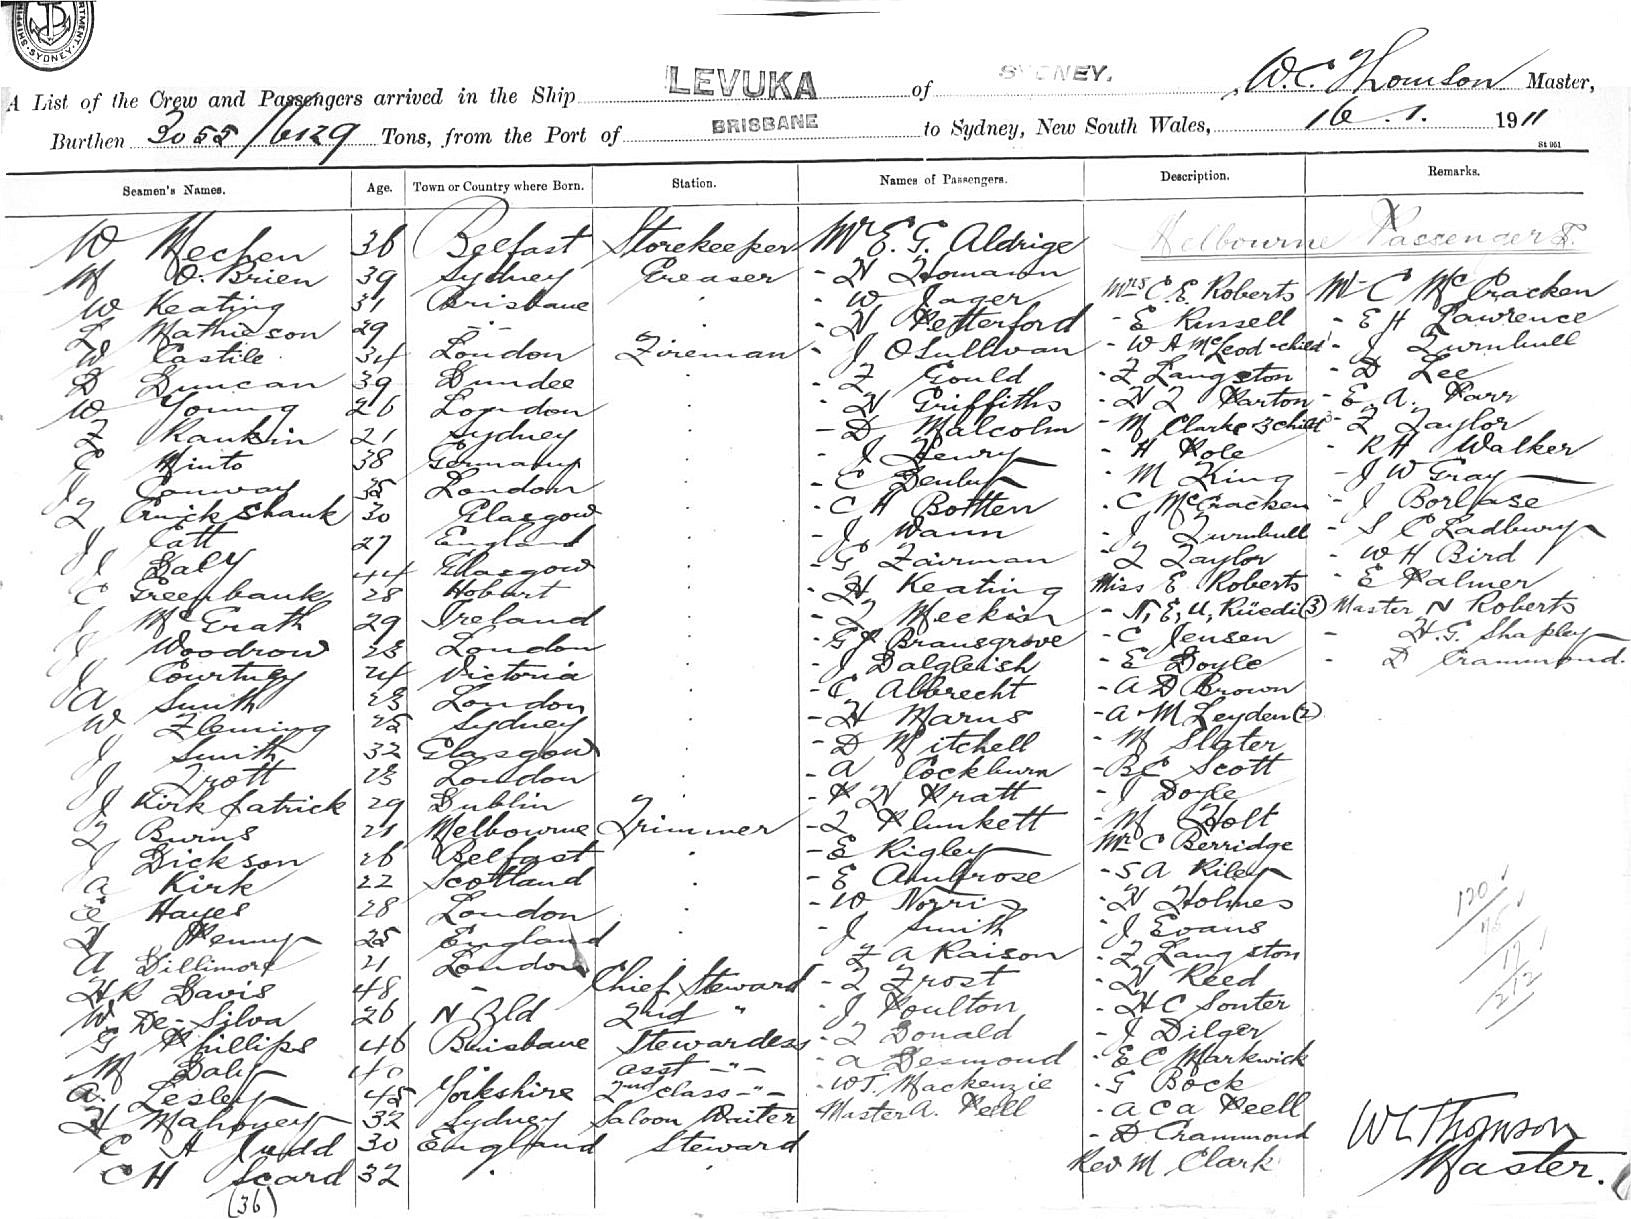 SHIPPING DEPARTMENT. SYDNEY.
A List of the Crew and Passengers arrived in the Ship LEVUKA of SYDNEY. W.C. Thomson Master,
Burthen 3055/6129 Tons, from the Port of BRISBANE to Sydney, New South Wales, 16.1. 1911
St 951
Seamen's Names. Age. Town or Country where Born. Station. Names of Passengers. Description. Remarks.
W Mechen 36 Belfast Storekeeper
M O.Brien 39 Sydney Greaser
W Keating 31 Brisbane "
L Mathieson 29 - " - "
W Castile 34 London Fireman
D Duncan 39 Dundee "
W Young 26 London "
F Rankin 21 Sydney "
C Minto 38 Germany "
J Conway 35 London "
T Cruickshank 30 Glasgow "
J Catt 27 England "
J Daly 44 Glasgow "
C Greenbank 28 Hobart "
J McGrath 29 Ireland "
J Woodrow 23 London "
J Courtney 24 Victoria "
A Smith 23 London "
W Fleming 25 Sydney "
J Smith 32 Glasgow "
J Trott 23 London "
J Kirkpatrick 29 Dublin "
T Burns 21 Melbourne Trimmer
J Dickson 26 Belfast "
A Kirk 22 Scotland "
E Hayes 28 London "
H Penny 25 England "
A Dillimore 21 London "
H R Davis 48 - Chief Steward
W De-Silva 26 N Qld 2nd "
G Phillips 46 Brisbane Stewardess
M Daly 40 asst -"-
A. Lesley 45 Yorkshire 2nd class -"-
H Mahoney 32 Sydney Saloon Waiter
C A Judd 30 England Steward
C H Scard 32 " "
(36)
Mr E. G. Aldrige
- H Homann
- W Jager
- H Petterford
- J OSullivan
- F Gould
- H Griffiths
- D Malcolm
- J Henry
- C Denby
- C H Botten
- J Wann
- G Fairman
- H Keating
- T Meekin
- G J Bransgrove
- J Dalgleish
- C Albrecht
- H Marus
- D Mitchell
- A Cockburn
- P H Pratt
- T Plunkett
- E Rigley
- E Ambrose
- W Norris
- J Smith
- F A Raison
- T Frost
- J Poulton
- T Donald
- A Desmond
- W.J. Mackenzie
Master A. Peell
Melbourne Passengers.
Mrs C. E. Roberts
- E Russell
- W A McLeod & child
- F Langston
- H J Parton
- M Clarke 3 child
- H Pole
- M King
- C McCracken
- J Turnbull
- F Taylor
Miss E Roberts
- N, E, U, Rüedi (3)
- C Jensen
- E Doyle
- A D Brown
- A M Leyden (2)
- M Slater
- B C Scott
- J Doyle
- M Holt
Mr C Berridge
- S A Riley
- H Holmes
- J Evans
- F Langston
- H Reed
- H C Sonter
- J Dilger
- E C Markwick
- G Bock
- A C A Peell
- D Crammond
Rev M Clark
Mr C McCracken
- E H Lawrence
- J Turnbull
- D Lee
- E. A. Parr
- F Taylor
- R H Walker
- J W Gray
- J Borlase
- S C Ladbury
- W H Bird
- E Palmer
Master N Roberts
- H.G. Shapley
- D Crammond.
120
75
17
212
W C Thomson
Master.